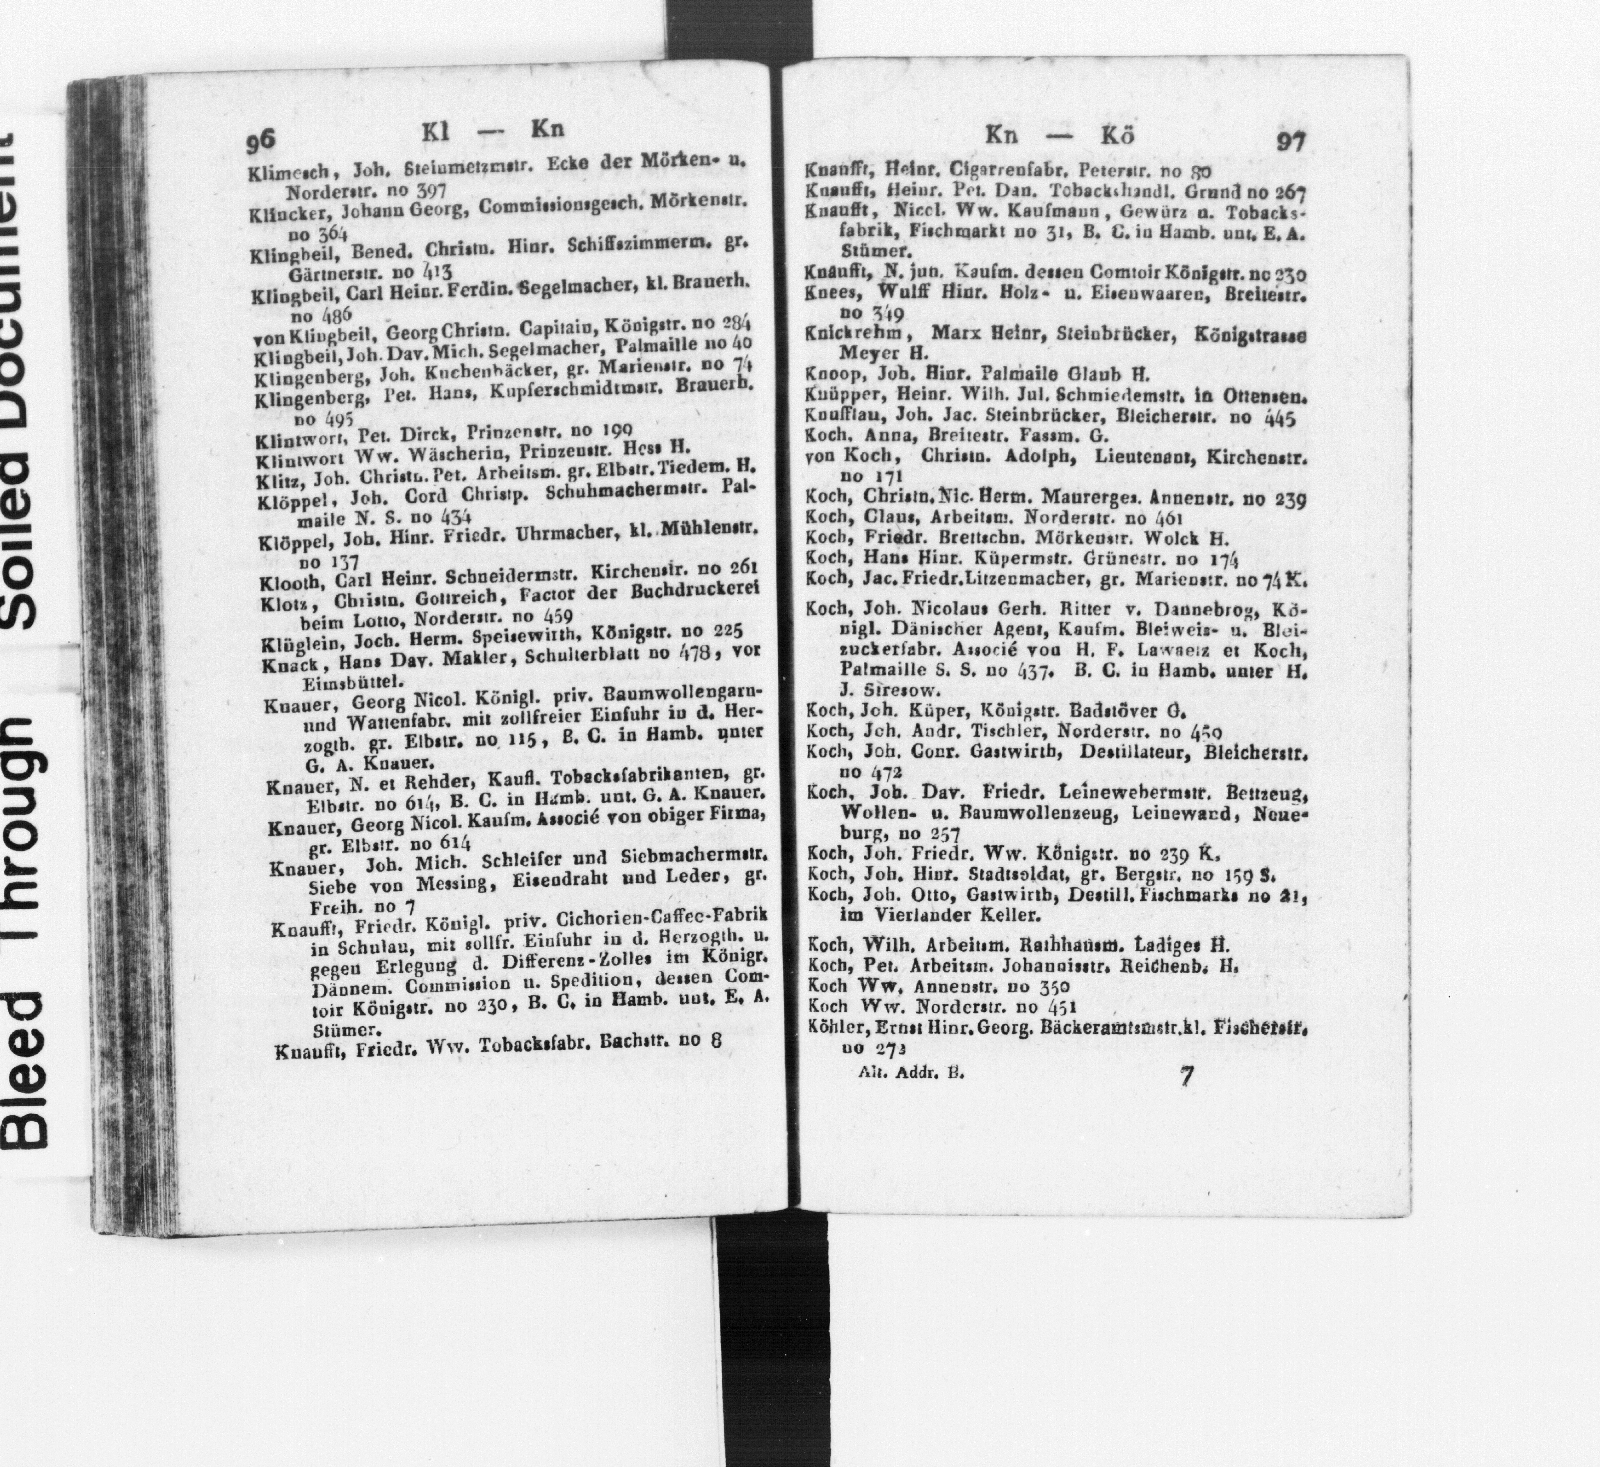 Bleed Through Soiled Document
96
Kl — Kn
Klimesch, Joh. Steinmetzmstr. Ecke der Mörken- u.
Norderstr. no 397
Klincker, Johann Georg, Commissionsgesch. Mörkenstr.
no 364
Klingbeil, Bened. Christn. Hinr. Schiffszimmerm. gr.
Gärtnerstr. no 413
Klingbeil, Carl Heinr. Ferdin. Segelmacher, kl. Brauerh.
no 486
von Klingbeil, Georg Christn. Capitain, Königstr. no 284
Klingbeil, Joh. Dav. Mich. Segelmacher, Palmaille no 40
Klingenberg, Joh. Kuchenbäcker, gr. Marienstr. no 74
Klingenberg, Pet. Hans, Kupferschmidtmstr. Brauerh.
no 495
Klintwort, Pet. Dirck, Prinzenstr. no 199
Klintwort Ww. Wäscherin, Prinzenstr. Hess H.
Klitz, Joh. Christn. Pet. Arbeitsm. gr. Elbstr. Tiedem. H.
Klöppel, Joh. Cord Christp. Schuhmachermstr. Pal-
maile N. S. no 434
Klöppel, Joh. Hinr. Friedr. Uhrmacher, kl. Mühlenstr.
no 137
Klooth, Carl Heinr. Schneidermstr. Kirchenstr. no 261
Klotz, Christn. Gottreich, Factor der Buchdruckerei
beim Lotto, Norderstr. no 459
Klüglein, Joch. Herm. Speisewirth, Königstr. no 225
Knack, Hans Dav. Makler, Schulterblatt no 478, vor
Eimsbüttel.
Knauer, Georg Nicol. Königl. priv. Baumwollengarn-
und Wattenfabr. mit zollfreier Einfuhr in d. Her-
zogth. gr. Elbstr. no 115, B. C. in Hamb. unter
G. A. Knauer.
Knauer, N. et Rehder, Kaufl. Tobacksfabrikanten, gr.
Elbstr. no 614, B. C. in Hamb. unt. G. A. Knauer.
Knauer, Georg Nicol. Kaufm. Associé von obiger Firma,
gr. Elbstr. no 614
Knauer, Joh. Mich. Schleifer und Siebmachermstr.
Siebe von Messing, Eisendraht und Leder, gr.
Freih. no 7
Knaufft, Friedr. Königl. priv. Cichorien-Caffee-Fabrik
in Schulau, mit sollfr. Einfuhr in d. Herzogth. u.
gegen Erlegung d. Differenz-Zolles im Königr.
Dännem. Commission u. Spedition, dessen Com-
toir Königstr. no 230, B. C. in Hamb. unt. E. A.
Stümer.
Knaufft, Friedr. Ww. Tobacksfabr. Bachstr. no 8
Kn — Kö
97
Knaufft, Heinr. Cigarrenfabr. Peterstr. no 80
Knaufft, Heinr. Pet. Dan. Tobackshandl. Grund no 267
Knaufft, Niccl. Ww. Kaufmann, Gewürz u. Tobacks-
fabrik, Fischmarkt no 31, B. C. in Hamb. unt. E. A.
Stümer.
Knaufft, N. jun. Kaufm. dessen Comtoir Königstr. no 230
Knees, Wulff Hinr. Holz- u. Eisenwaaren, Breitestr.
no 349
Knickrehm, Marx Heinr, Steinbrücker, Königstrasse
Meyer H.
Knoop, Joh. Hinr. Palmaile Glaub H.
Knüpper, Heinr. Wilh. Jul. Schmiedemstr. in Ottensen.
Knufflau, Joh. Jac. Steinbrücker, Bleicherstr. no 445
Koch, Anna, Breitestr. Fassm. G.
von Koch, Christn. Adolph, Lieutenant, Kirchenstr.
no 171
Koch, Christn. Nic. Herm. Maurerges. Annenstr. no 239
Koch, Claus, Arbeitsm. Norderstr. no 461
Koch, Friedr. Brettschn. Mörkenstr. Wolck H.
Koch, Hans Hinr. Küpermstr. Grünestr. no 174
Koch, Jac. Friedr. Litzenmacher, gr. Marienstr. no 74 K.
Koch, Joh. Nicolaus Gerh. Ritter v. Dannebrog, Kö-
nigl. Dänischer Agent, Kaufm. Bleiweis- u. Blei-
zuckerfabr. Associé von H. F. Lawaetz et Koch,
Palmaille S. S. no 437. B. C. in Hamb. unter H.
J. Stresow.
Koch, Joh. Küper, Königstr. Badstöver G.
Koch, Joh. Andr. Tischler, Norderstr. no 450
Koch, Joh. Conr. Gastwirth, Destillateur, Bleicherstr.
no 472
Koch, Joh. Dav. Friedr. Leinewebermstr. Bettzeug,
Wollen- u. Baumwollenzeug, Leinewand, Neue-
burg, no 257
Koch, Joh. Friedr. Ww. Königstr. no 239 K.
Koch, Joh. Hinr. Stadtsoldat, gr. Bergstr. no 159 S.
Koch, Joh. Otto, Gastwirth, Destill. Fischmarkt no 21,
im Vierlander Keller.
Koch, Wilh. Arbeitsm. Rathhausm. Ladiges H.
Koch, Pet. Arbeitsm. Johannisstr. Reichenb. H.
Koch Ww. Annenstr. no 350
Koch Ww. Norderstr. no 451
Köhler, Ernst Hinr. Georg. Bäckeramtsmstr. kl. Fischerstr.
no 273
Alt. Addr. B.
7